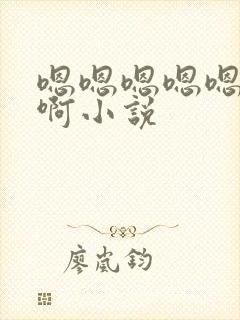 嗯嗯嗯嗯嗯
啊小説
廖嵐鈞